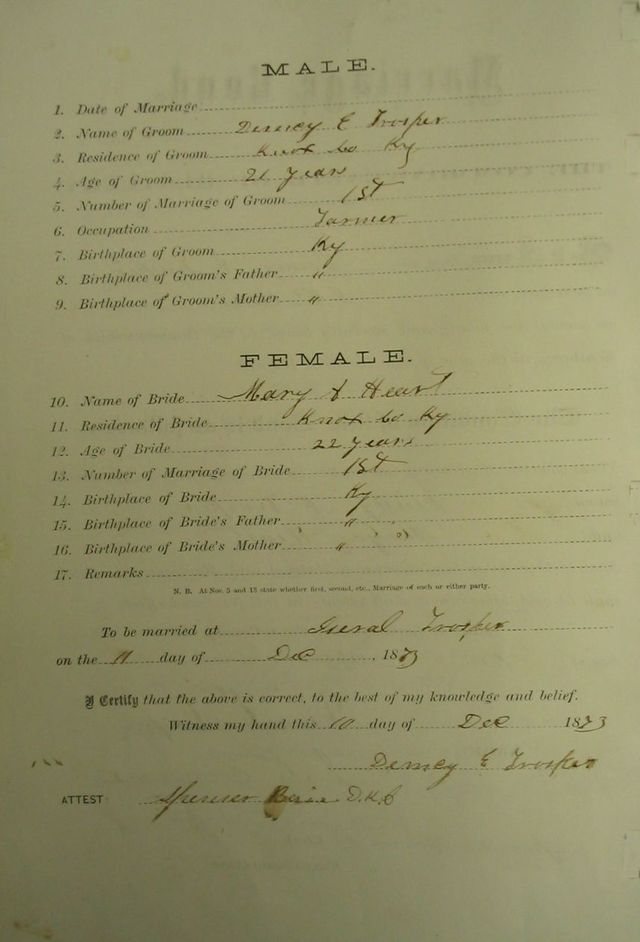 MALE.
1. Date of Marriage
2. Name of Groom Demcy E Trosper
3. Residence of Groom Knox Co Ky
4. Age of Groom 21 years
5. Number of Marriage of Groom 1st
6. Occupation Farmer
7. Birthplace of Groom Ky
8. Birthplace of Groom's Father "
9. Birthplace of Groom's Mother "
FEMALE.
10. Name of Bride Mary A Heart
11. Residence of Bride Knox Co Ky
12. Age of Bride 22 years
13. Number of Marriage of Bride 1st
14. Birthplace of Bride Ky
15. Birthplace of Bride's Father "
16. Birthplace of Bride's Mother "
17. Remarks
N. B. At Nos. 5 and 13 state whether first, second, etc., Marriage of each or either party.
To be married at Trosper
on the 11 day of Dec, 1873
I Certify that the above is correct, to the best of my knowledge and belief.
Witness my hand this 10 day of Dec 1873
Demcy E Trosper
ATTEST: Spencer D.K.C